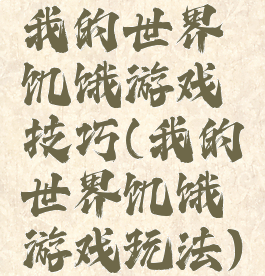 我的世界
饥饿游戏
技巧(我的
世界饥饿
游戏玩法)